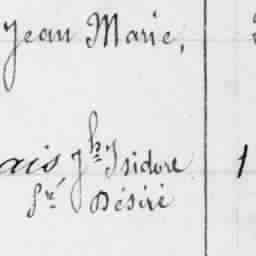 Jean Marie,
ais, Jh Isidore 1
fré Désiré